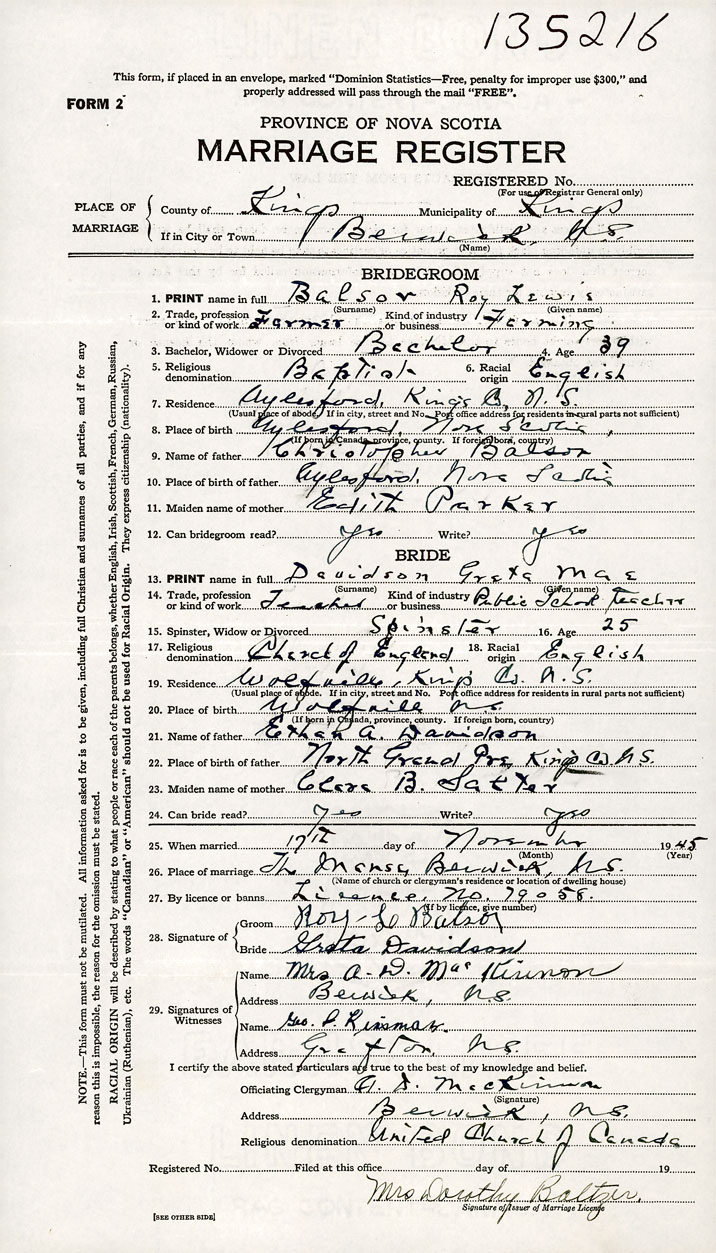 135216
This form, if placed in an envelope, marked "Dominion Statistics—Free, penalty for improper use $300," and
properly addressed will pass through the mail "FREE".
FORM 2
PROVINCE OF NOVA SCOTIA
MARRIAGE REGISTER
REGISTERED No.
(For use of Registrar General only)
PLACE OF MARRIAGE
County of Kings Municipality of Kings
If in City or Town Berwick, N.S.
(Name)
BRIDEGROOM
1. PRINT name in full Balsor Roy Lewis
(Surname) (Given name)
2. Trade, profession or kind of work Farmer Kind of industry or business Farming
3. Bachelor, Widower or Divorced Bachelor 4. Age 39
5. Religious denomination Baptist 6. Racial origin English
7. Residence Aylesford, Kings Co, N.S.
(Usual place of abode. If in city, street and No. Post office address for residents in rural parts not sufficient)
8. Place of birth Aylesford, Nova Scotia,
(If born in Canada, province, county. If foreign born, country)
9. Name of father Christopher Balsor
10. Place of birth of father Aylesford, Nova Scotia
11. Maiden name of mother Edith Parker
12. Can bridegroom read? yes Write? yes
BRIDE
13. PRINT name in full Davidson Greta Mae
(Surname) (Given name)
14. Trade, profession or kind of work Teacher Kind of industry or business Public School Teacher
15. Spinster, Widow or Divorced Spinster 16. Age 25
17. Religious denomination Church of England 18. Racial origin English
19. Residence Wolfville, Kings Co. N.S.
(Usual place of abode. If in city, street and No. Post office address for residents in rural parts not sufficient)
20. Place of birth Wolfville N.S.
(If born in Canada, province, county. If foreign born, country)
21. Name of father A. Davidson
22. Place of birth of father North Grand Pre, Kings Co. N.S.
23. Maiden name of mother Clara B.
24. Can bride read? Yes Write? Yes
25. When married 17th day of November 1945
(Month) (Year)
26. Place of marriage The Manse, Berwick, N.S.
(Name of church or clergyman's residence or location of dwelling house)
27. By licence or banns Licence, No. 79058.
(If by licence, give number)
28. Signature of
Groom Roy L Balsor
Bride Greta Davidson
29. Signatures of Witnesses
Name Mrs A. D. MacKinnon
Address Berwick, N.S.
Name Geo. Kinsman.
Address Grafton, N.S.
I certify the above stated particulars are true to the best of my knowledge and belief.
Officiating Clergyman A. D. MacKinnon
(Signature)
Address Berwick, N.S.
Religious denomination United Church of Canada
Registered No. Filed at this office day of 19
Mrs Dorothy Baltzer.
Signature of Issuer of Marriage License
[SEE OTHER SIDE]
NOTE.—This form must not be mutilated. All information asked for is to be given, including full Christian and surnames of all parties, and if for any
reason this is impossible, the reason for the omission must be stated.
RACIAL ORIGIN will be described by stating to what people or race each of the parents belongs, whether English, Irish, Scottish, French, German, Russian,
Ukrainian (Ruthenian), etc. The words "Canadian" or "American" should not be used for Racial Origin. They express citizenship (nationality).